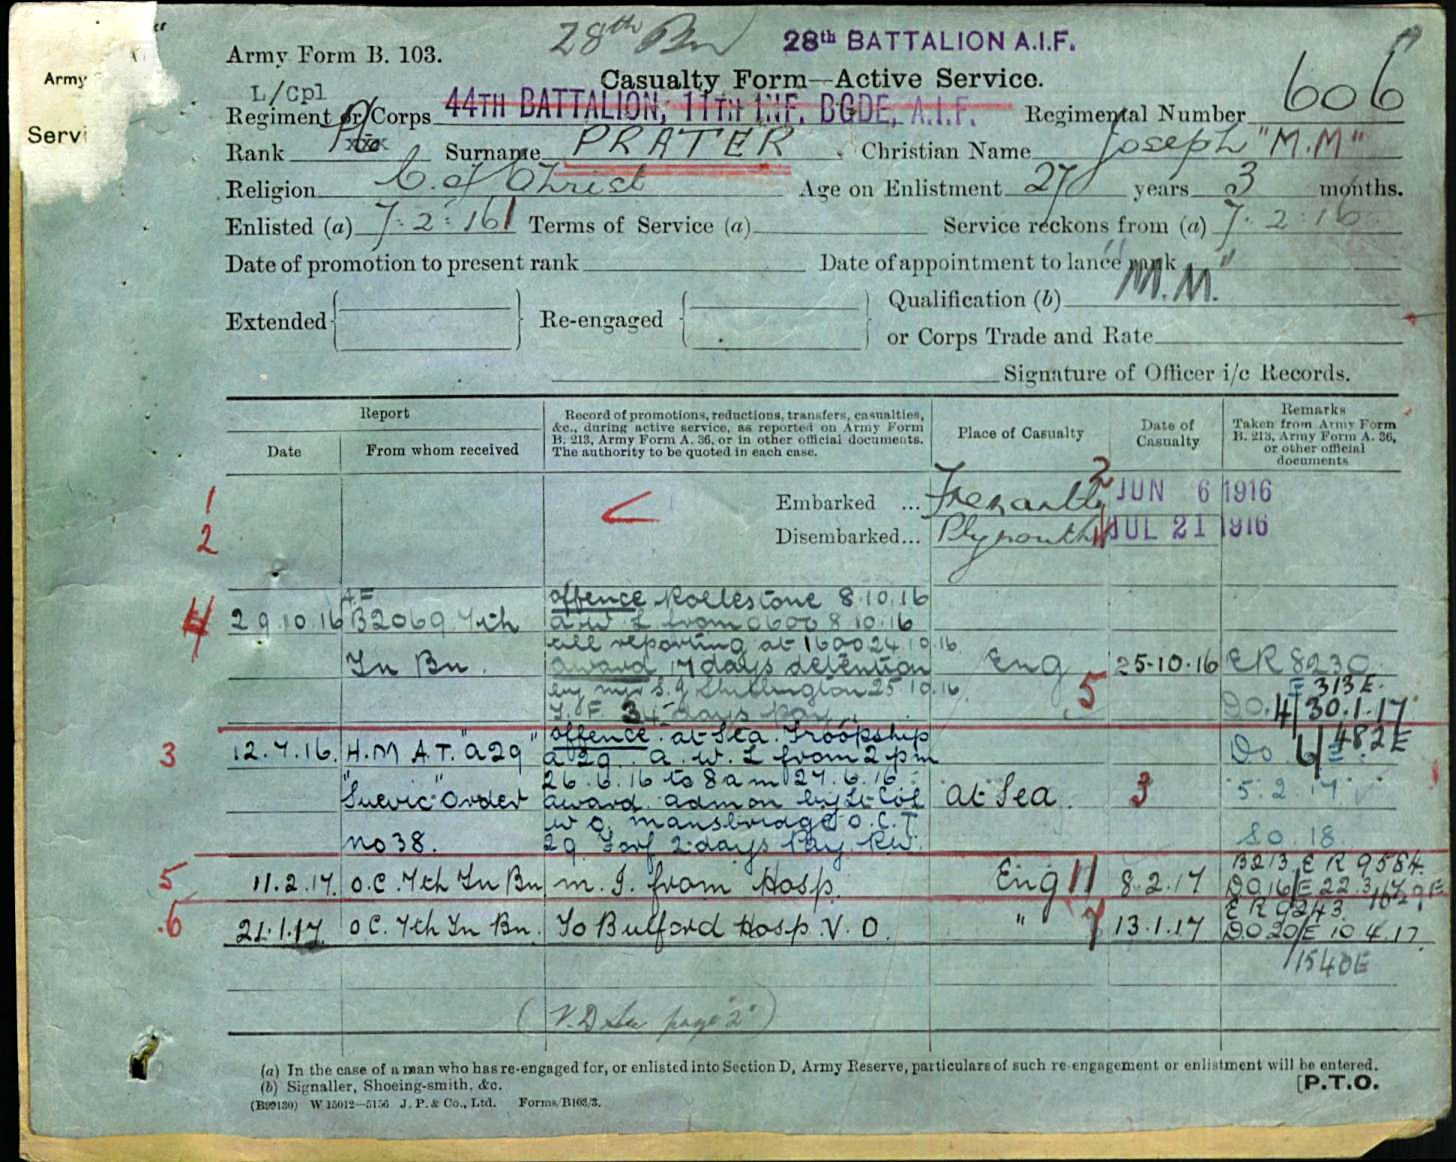 28th Bn 28th BATTALION A.I.F.
Army Form B. 103.
Army
Casualty Form—Active Service.
L/Cpl
Regiment or Corps 44TH BATTALION, 11TH INF. BGDE, A.I.F. Regimental Number 606
Servi
Rank Surname PRATER Christian Name Joseph "M.M"
Religion C. of Christ Age on Enlistment 27 years 3 months.
Enlisted (a) 7.2.16 Terms of Service (a) Service reckons from (a) 7.2.16
Date of promotion to present rank Date of appointment to lance rank
"M.M."
Extended Re-engaged Qualification (b)
or Corps Trade and Rate
Signature of Officer i/c Records.
Report
Date From whom received
Record of promotions, reductions, transfers, casualties,
&c., during active service, as reported on Army Form
B. 213, Army Form A. 36, or in other official documents.
The authority to be quoted in each case.
Place of Casualty
Date of
Casualty
Remarks
Taken from Army Form
B. 213, Army Form A. 36,
or other official
documents
1 Embarked ... Fremantle 2 JUN 6 1916
2 Disembarked... Plymouth JUL 21 1916
offence Rollestone 8.10.16
4 29.10.16 B2069 7th a.w.L from 0600 8.10.16
till reporting at 1600 24.10.16
Tn Bn. award 17 days detention Eng 25.10.16 ER 8230
by mjr S. J. 25.10.16 5 313E
T.F. 34 days Pay DO. 4/30.1.17
3 12.7.16. H.M.A.T. "A29" offence at Sea. Troopship Do 482E
A29. a.w.L from 2 pm
26.6.16 to 8 am 27.6.16.
"Suevic" Order award. admon by Lt Col At Sea. 3 5.2.17
W O. Mansbridge O.C.T.
no 38. 29 Forf 2 days Pay. So. 18
5 11.2.17. O.C. 7th Tn Bn m. I. from Hosp. Eng 11 8.2.17 B213. E R 9584.
DO 16/E 22.3.17
6 21.1.17 OC. 7th Tn Bn. To Bulford Hosp. V.D. " 7 13.1.17 E R 9243.
DO 20/E 10.4.17.
1540E
(V.D See page "2")
(a) In the case of a man who has re-engaged for, or enlisted into Section D, Army Reserve, particulars of such re-engagement or enlistment will be entered.
(b) Signaller, Shoeing-smith, &c.
[P.T.O.
(B99130) W 15012—5156 J. P. & Co., Ltd. Forms/B103/3.